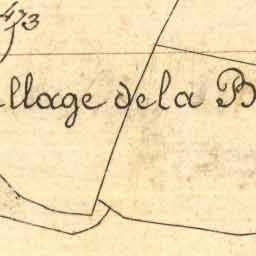 473
llage de la B